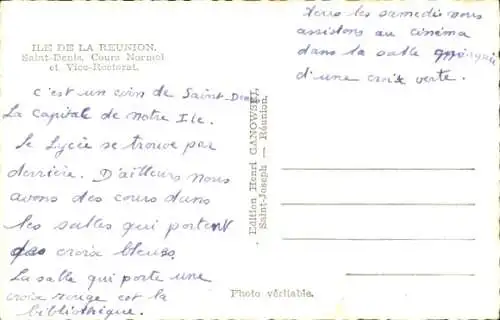 ILE DE LA REUNION.
Saint-Denis, Cours Normal
et Vice-Rectorat.
c'est un coin de Saint-Denis
La capitale de notre Ile.
Le Lycée se trouve par
derrière. D'ailleurs nous
avons des cours dans
les salles qui portent
des croix bleues.
La salle qui porte une
croix rouge est la
bibliothèque.
Edition Henri GANOWSKI,
Saint-Joseph — Réunion.
Photo véritable.
tous les samedis nous
assistons au cinéma
dans la salle
d'une croix verte.